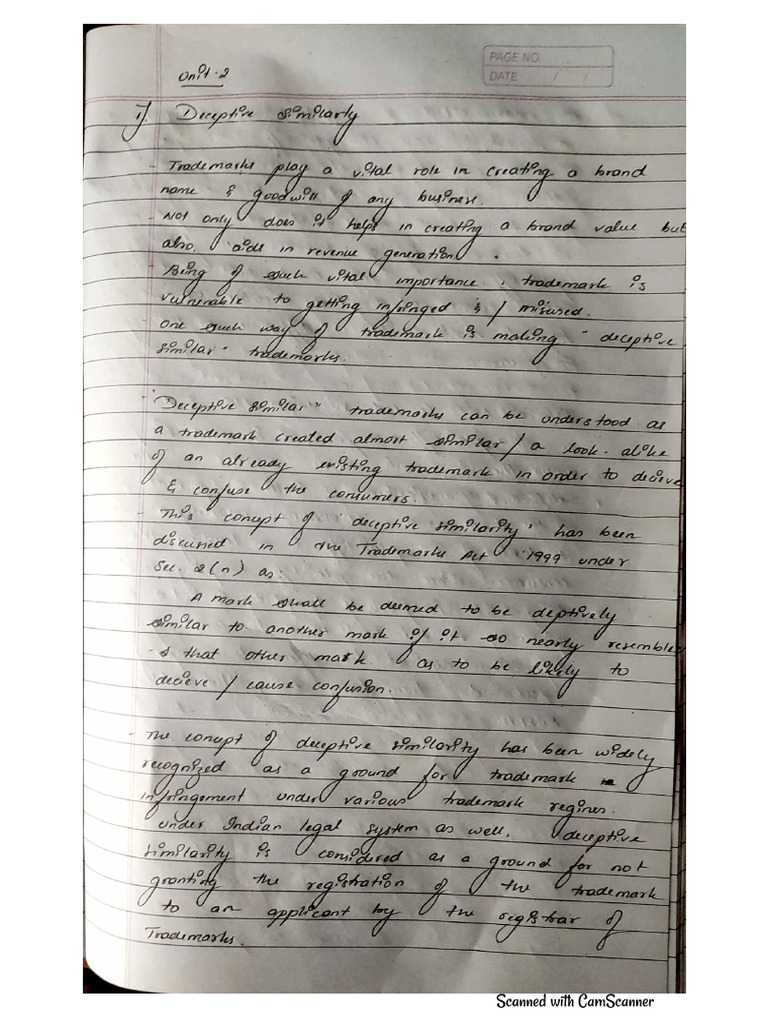 PAGE NO.
DATE / /
Unit-2
1). Deceptive Similarly
- Trademarks play a vital role in creating a brand
name & goodwill of any business.
- Not only does it helps in creating a brand value but
also, aids in revenue generation.
- Being of such vital importance, trademark is
vulnerable to getting infringed & / misused.
One such way of trademark is making "deceptive
similar" trademarks.
- "Deceptive similar" trademarks can be understood as
a trademark created almost similar / a look-alike
of an already existing trademark in order to decieve
& confuse the consumers.
- This concept of 'deceptive similarity' has been
discussed in the Trademarks Act 1999 under
Sec. 2(n) as:
A mark shall be deemed to be deptively
similar to another mark if it so nearly resembles
that other mark as to be likely to
decieve / cause confusion.
- The concept of deceptive similarity has been widely
recognized as a ground for trademark
infringement under various trademark regines.
under Indian legal system as well, deceptive
similarity is considered as a ground for not
granting the registration of the trademark
to an applicant by the registrar of
Trademarks.
Scanned with CamScanner